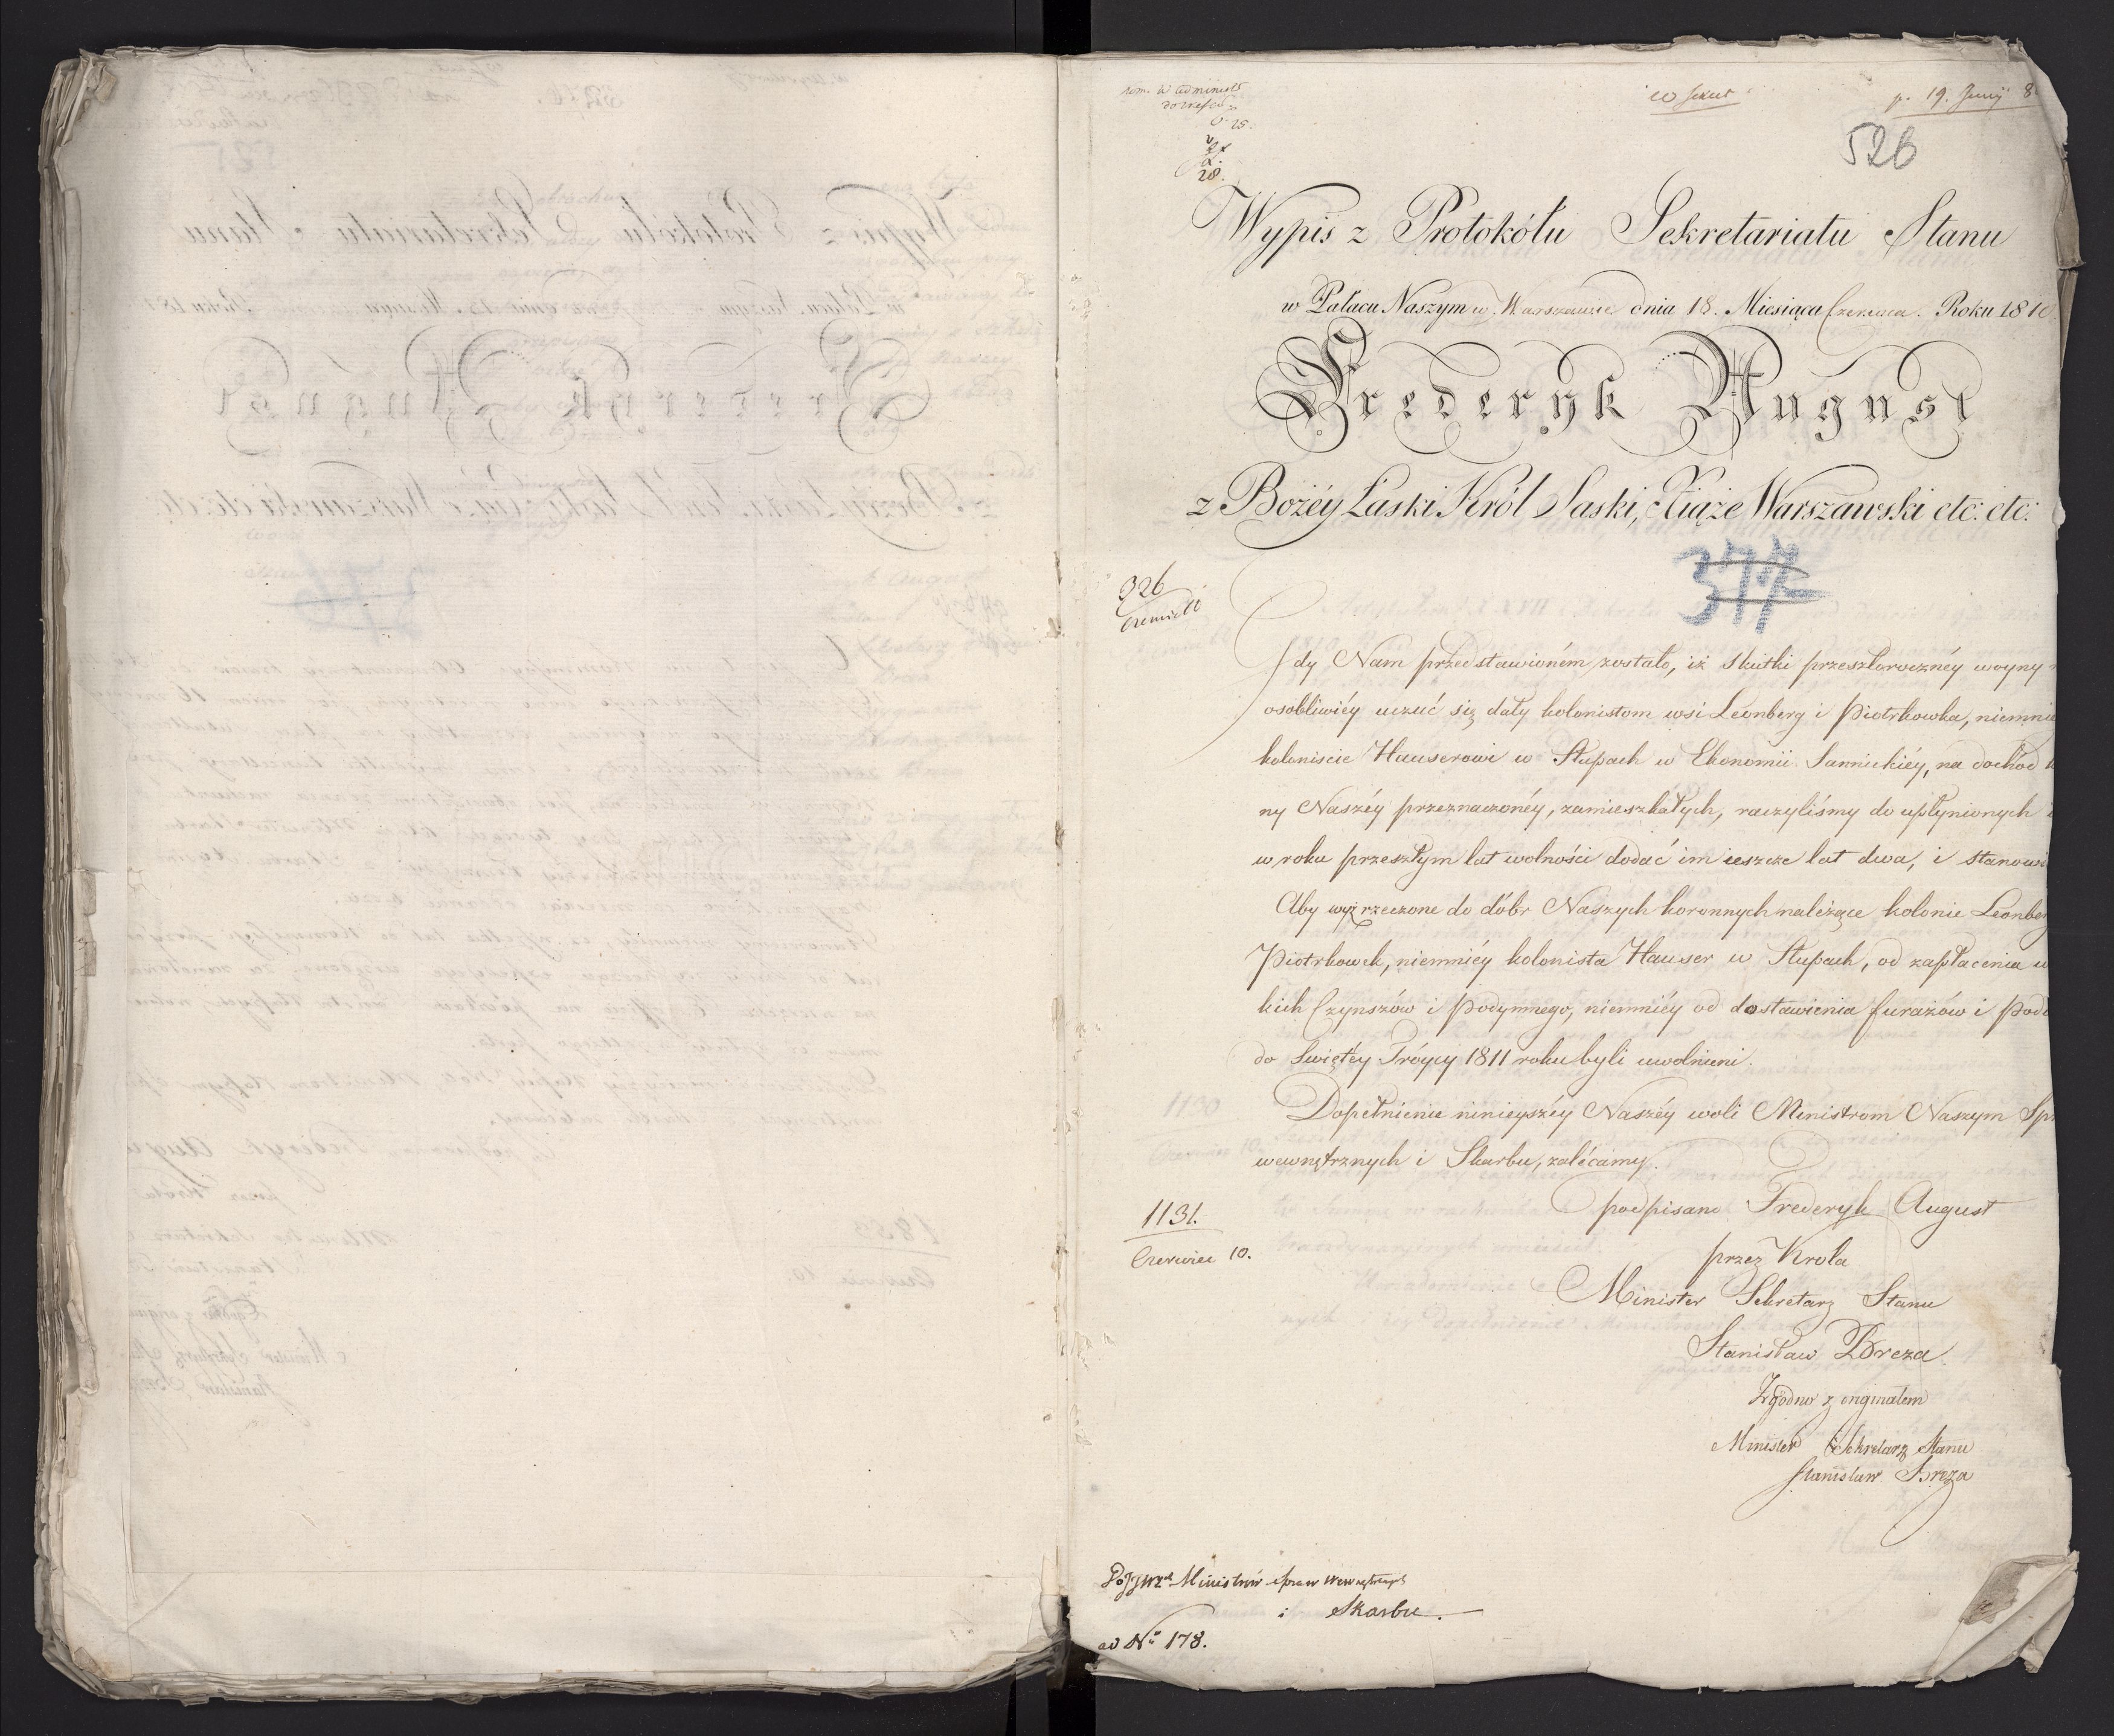 p. 19. Junij 8
526
Wypis z Protokółu Sekretariatu Stanu
w Pałacu Naszym w Warszawie dnia 18. Miesiąca Czerwca. Roku 1810
Frederyk August
z Bożéy Łaski Król Saski, Xiąże Warszawski etc: etc:
377
326
Gdy Nam przedstawioném zostało, iż skutki przeszłorocznéy woyny
osobliwiéy uczuć się dały kolonistom wsi Leonberg i Piotrkowka, niemnié
koloniscie Hauserowi w Słupach w Ekonomii Sannickiéy, na dochód
ny Naszéy przeznaczonéy, zamieszkałych, raczyliśmy do upłynionych
w roku przeszłym lat wolności dodać im ieszcze lat dwa, i stanowi
Aby wyż rzeczone do dóbr Naszych koronnych należące kolonie Leonberg
Piotrkowek, niemniéy kolonista Hauser w Słupach, od zapłacenia w
kich Czynszów i Podymnego, niemniéy od dostawienia furażów i Podw
do Swiętéy Tróycy 1811 roku byli uwolnieni.
Dopełnienie ninieyszéy Naszéy woli Ministrom Naszym Spr
wewnętrznych i Skarbu, zalécamy.
podpisano Frederyk August
1131.
Czerwiec 10.
przez Krola
Minister Sekretarz Stanu
Stanisław Breza
Zgodno z originałem
Minister Sekretarz Stanu
Stanisław Breza
Ministrów Spraw Wewnętrznych
i Skarbu.
ad No 178.